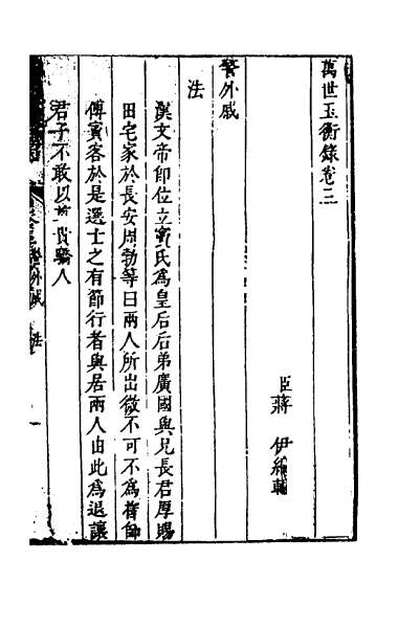 萬世玉衡錄卷三
臣蔣　伊編輯
警外戚
法
漢文帝卽位立竇氏爲皇后后弟廣國與兄長君厚賜
田宅家於長安周勃等曰兩人所出微不可不爲擇師
傅賓客於是選士之有節行者與居兩人由此爲退讓
君子不敢以尊貴驕人
外戚　法